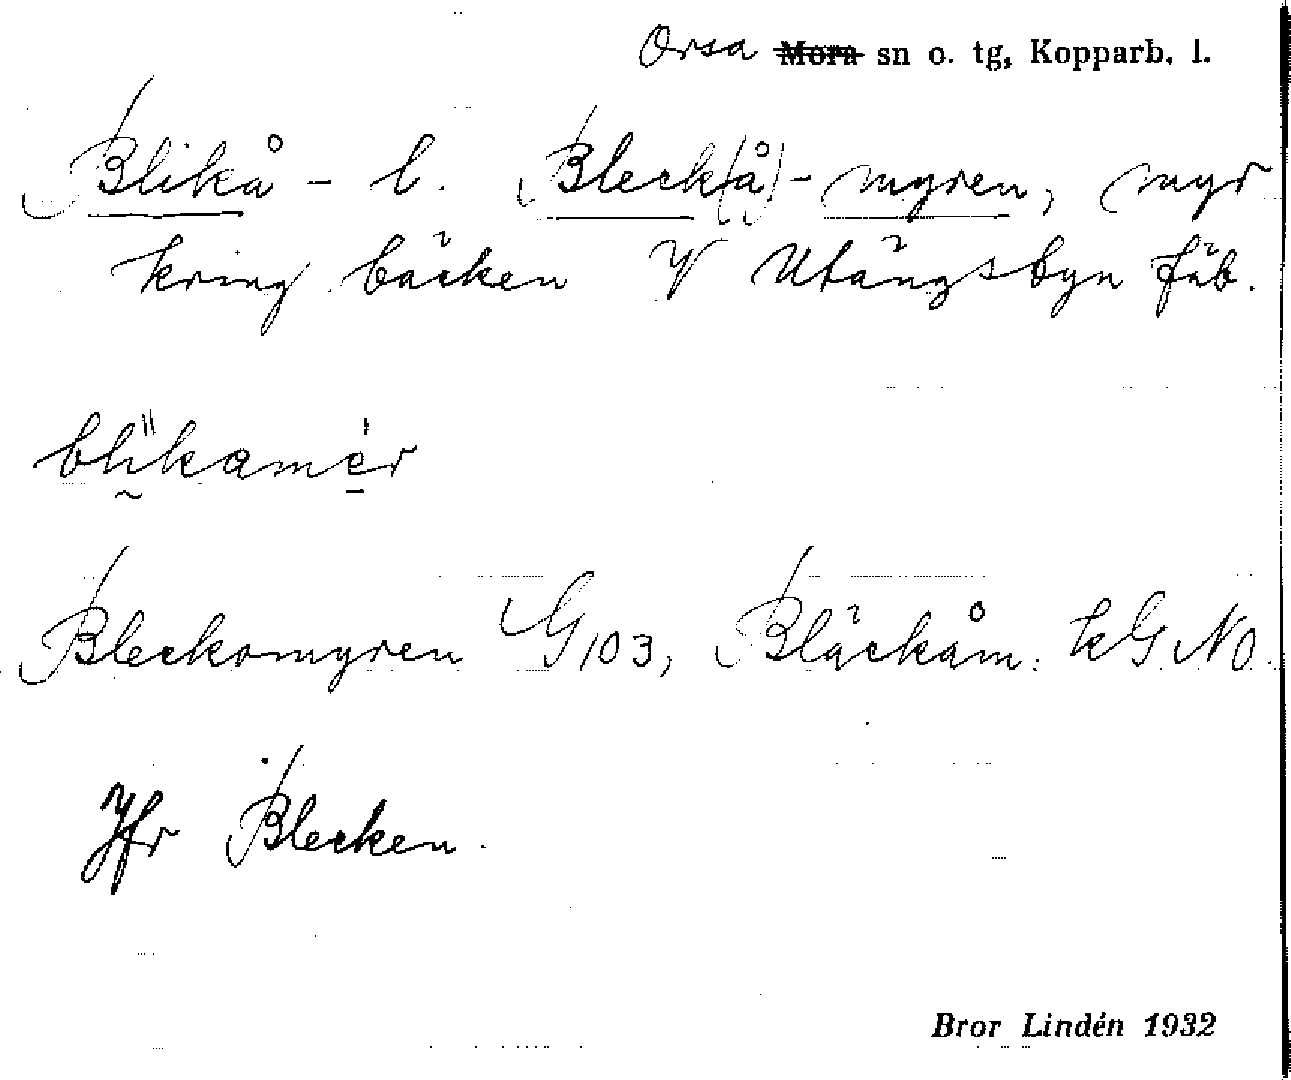 Orsa Mora sn o. tg, Kopparb. l.
Blikå- l. Bleck(å)-myren, myr
kring bäcken V Utängsbyn fäb.
blikamer
Bleckomyren G 103, Bläckåm. kG NO.
Jfr Blecken.
Bror Lindén 1932